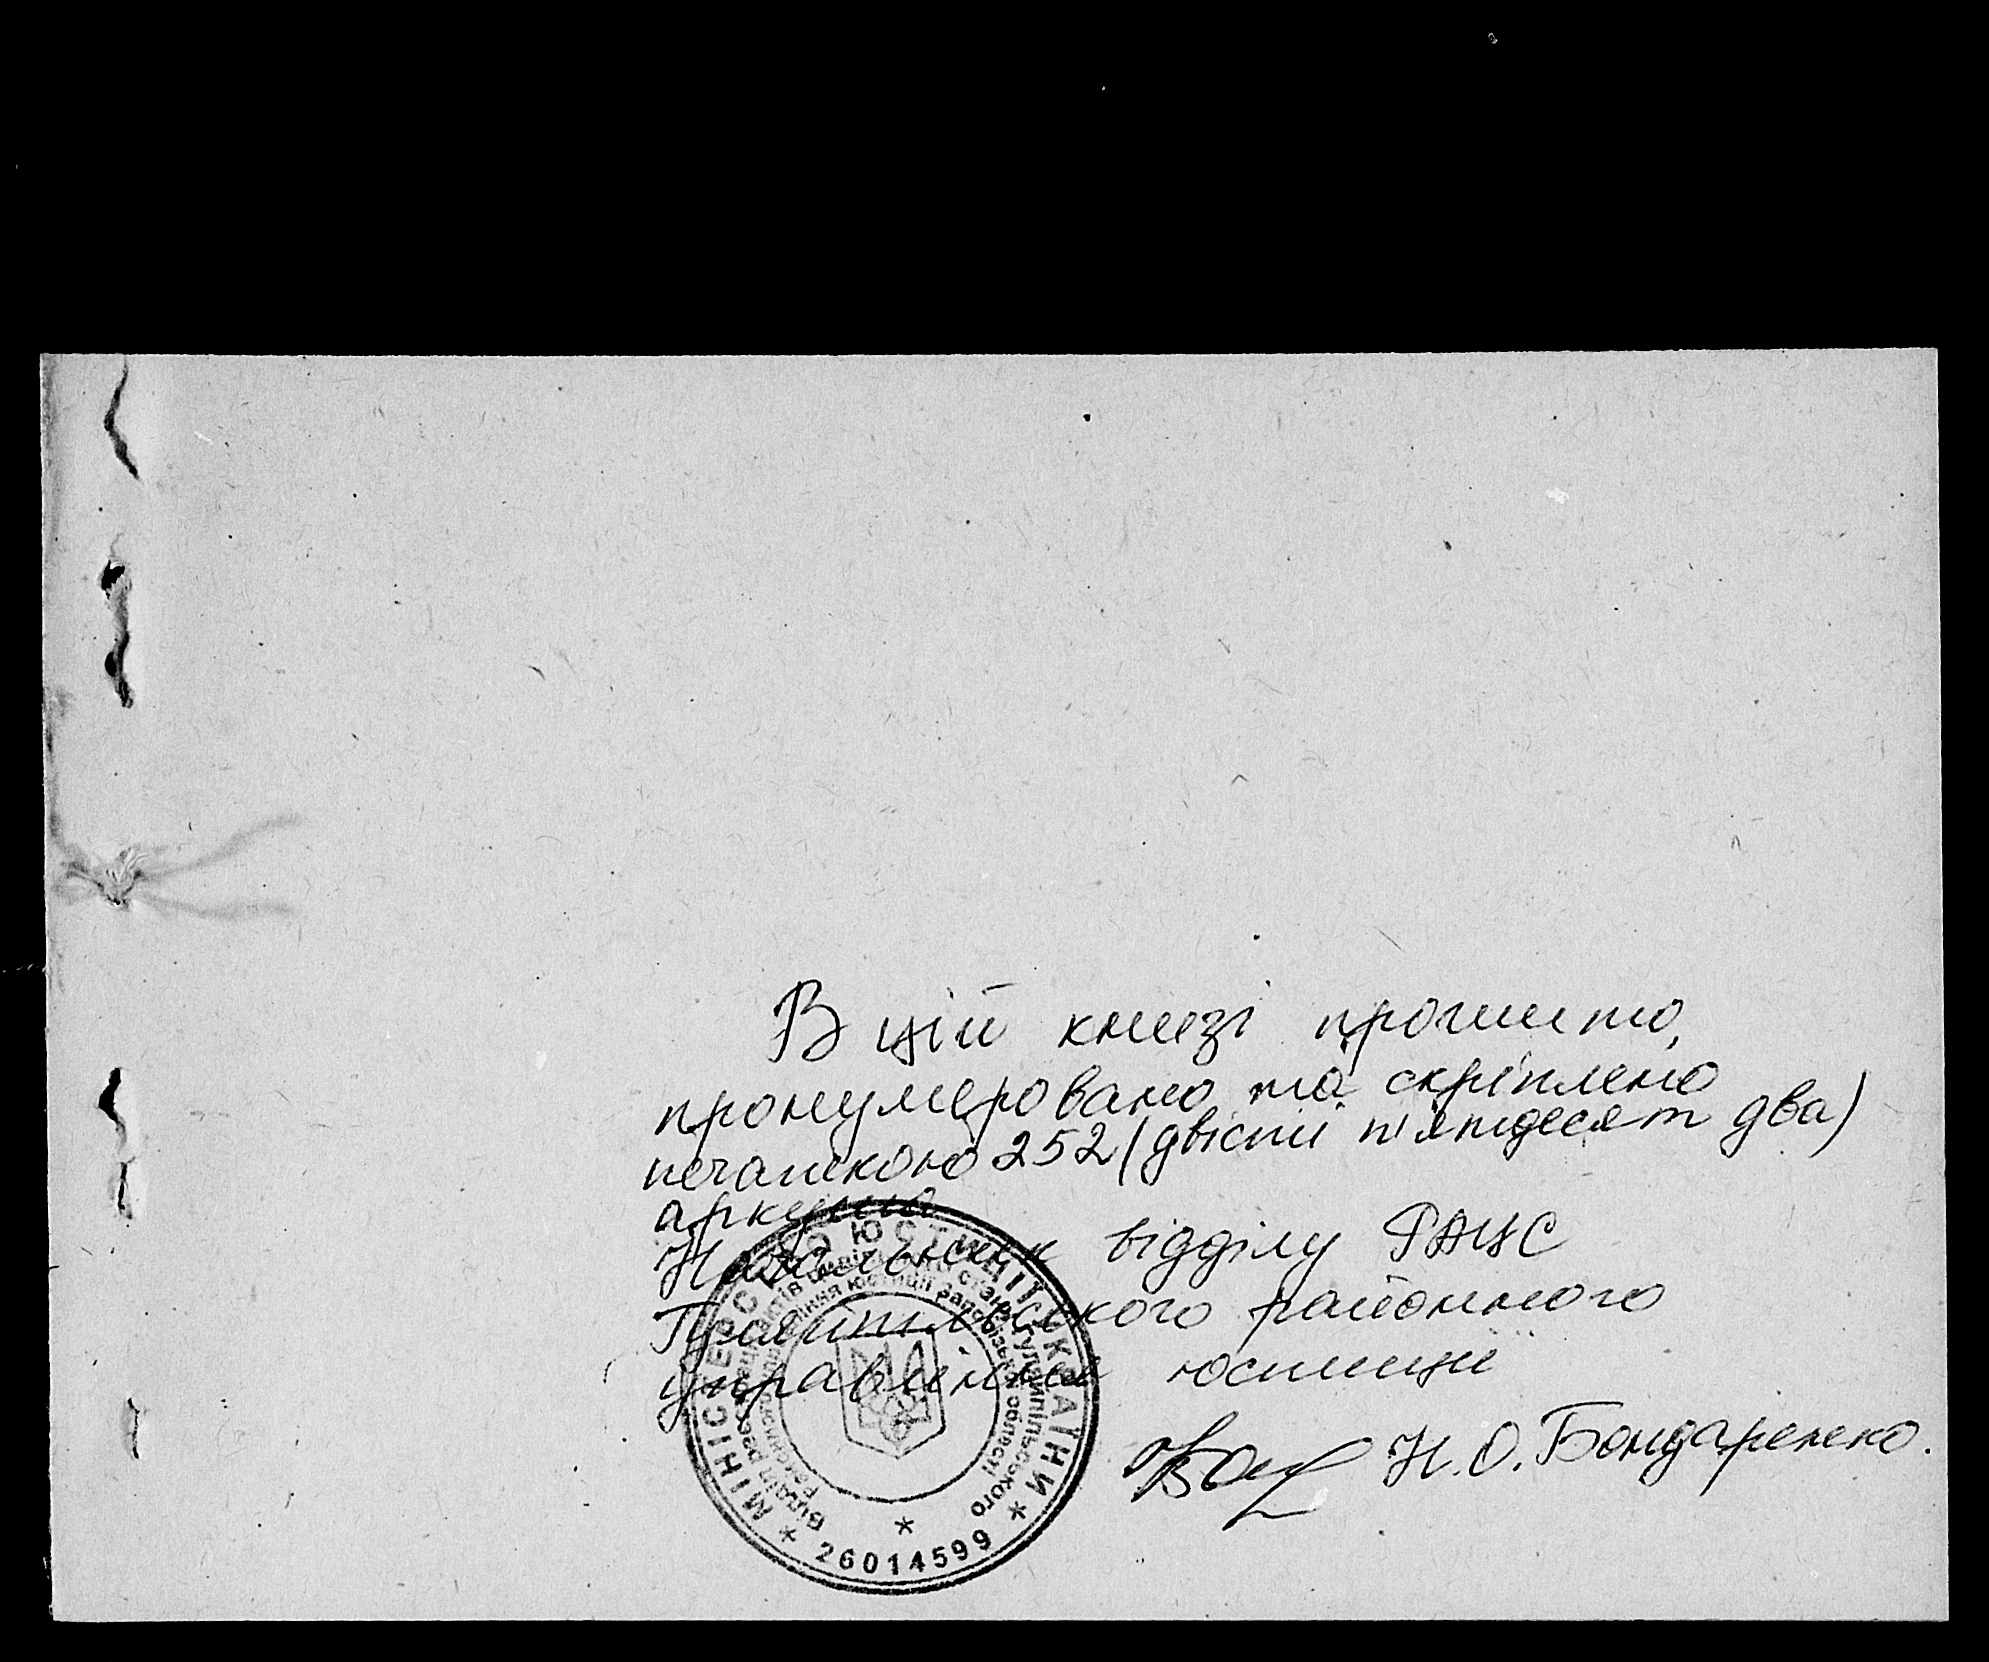 В цій книзі прошито,
пронумеровано та скріплено
печаткою 252 (двісті п'ятдесят два)
аркушів
Начальник відділу РАЦС
Гуляйпільського районного
управління юстиції
Н.О. Бондаренко.
МІНІСТЕРСТВО ЮСТИЦІЇ УКРАЇНИ
Відділ реєстрації актів цивільного стану Гуляйпільського
районного управління юстиції Запорізької області
* 26014599 *